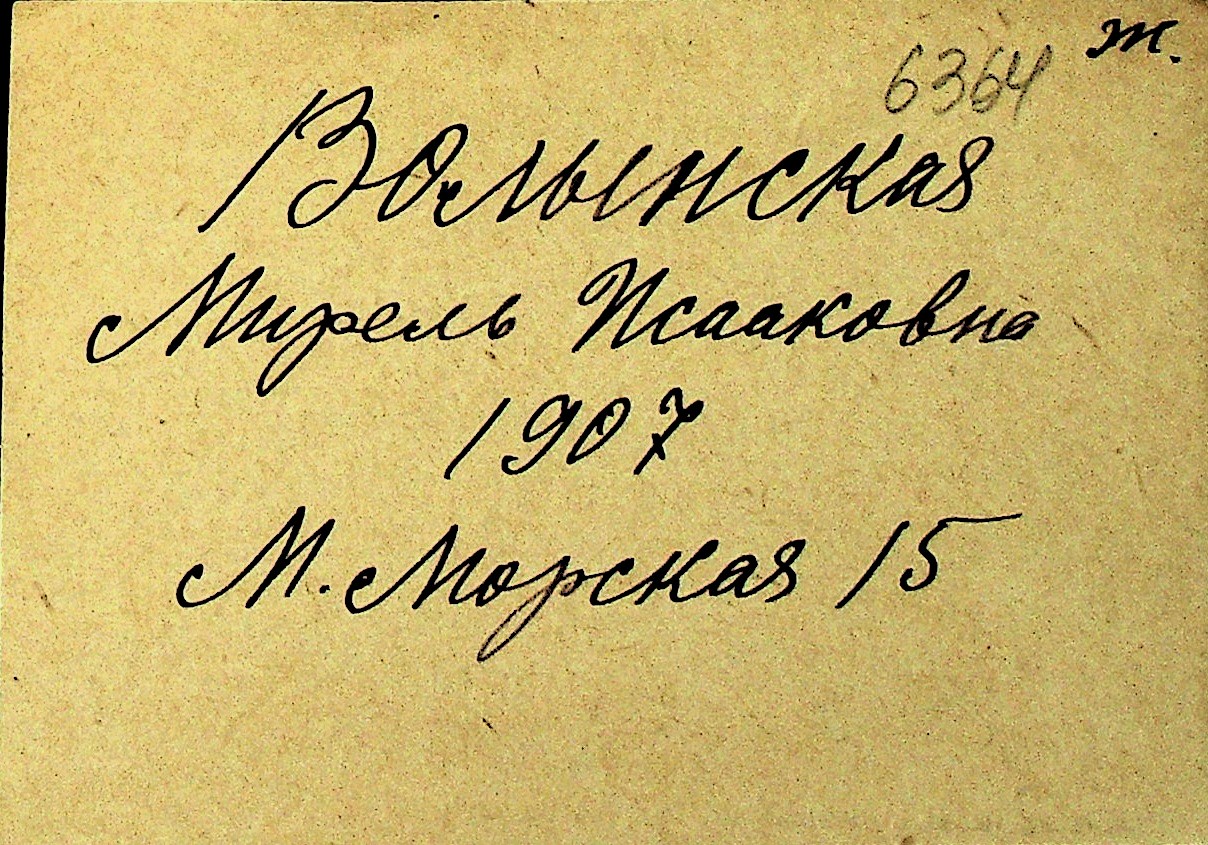 6364 ж.
Волынская
Мирель Исааковна
1907
М. Морская 15